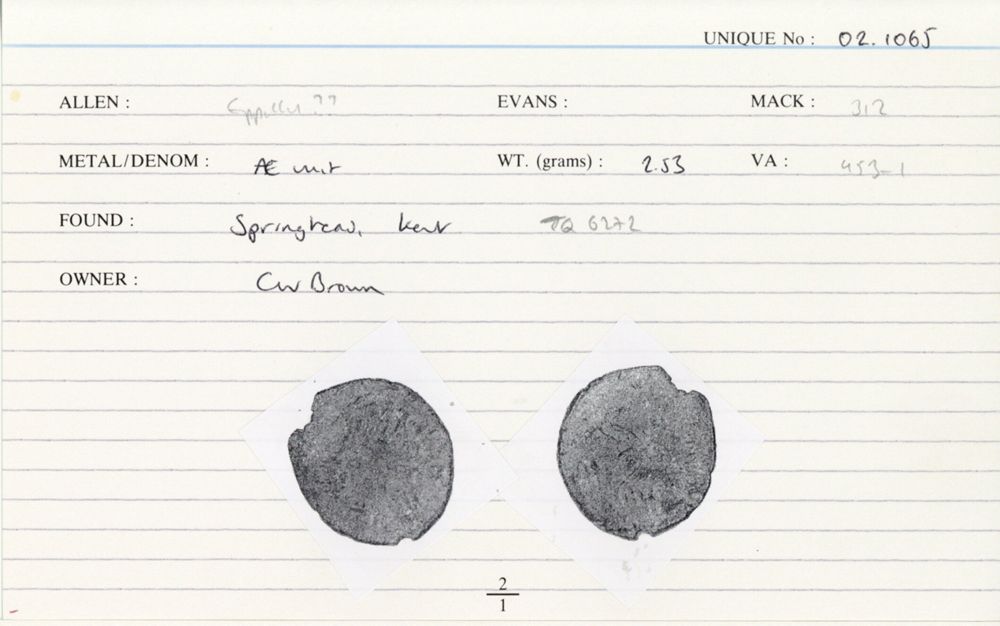 UNIQUE No : 02.1065
ALLEN : Eppillus ?? EVANS : MACK : 312
METAL/DENOM : Æ unit WT. (grams) : 2.53 VA : 453-1
FOUND : Springhead, Kent TQ 6272
OWNER : CW Brown
2
1